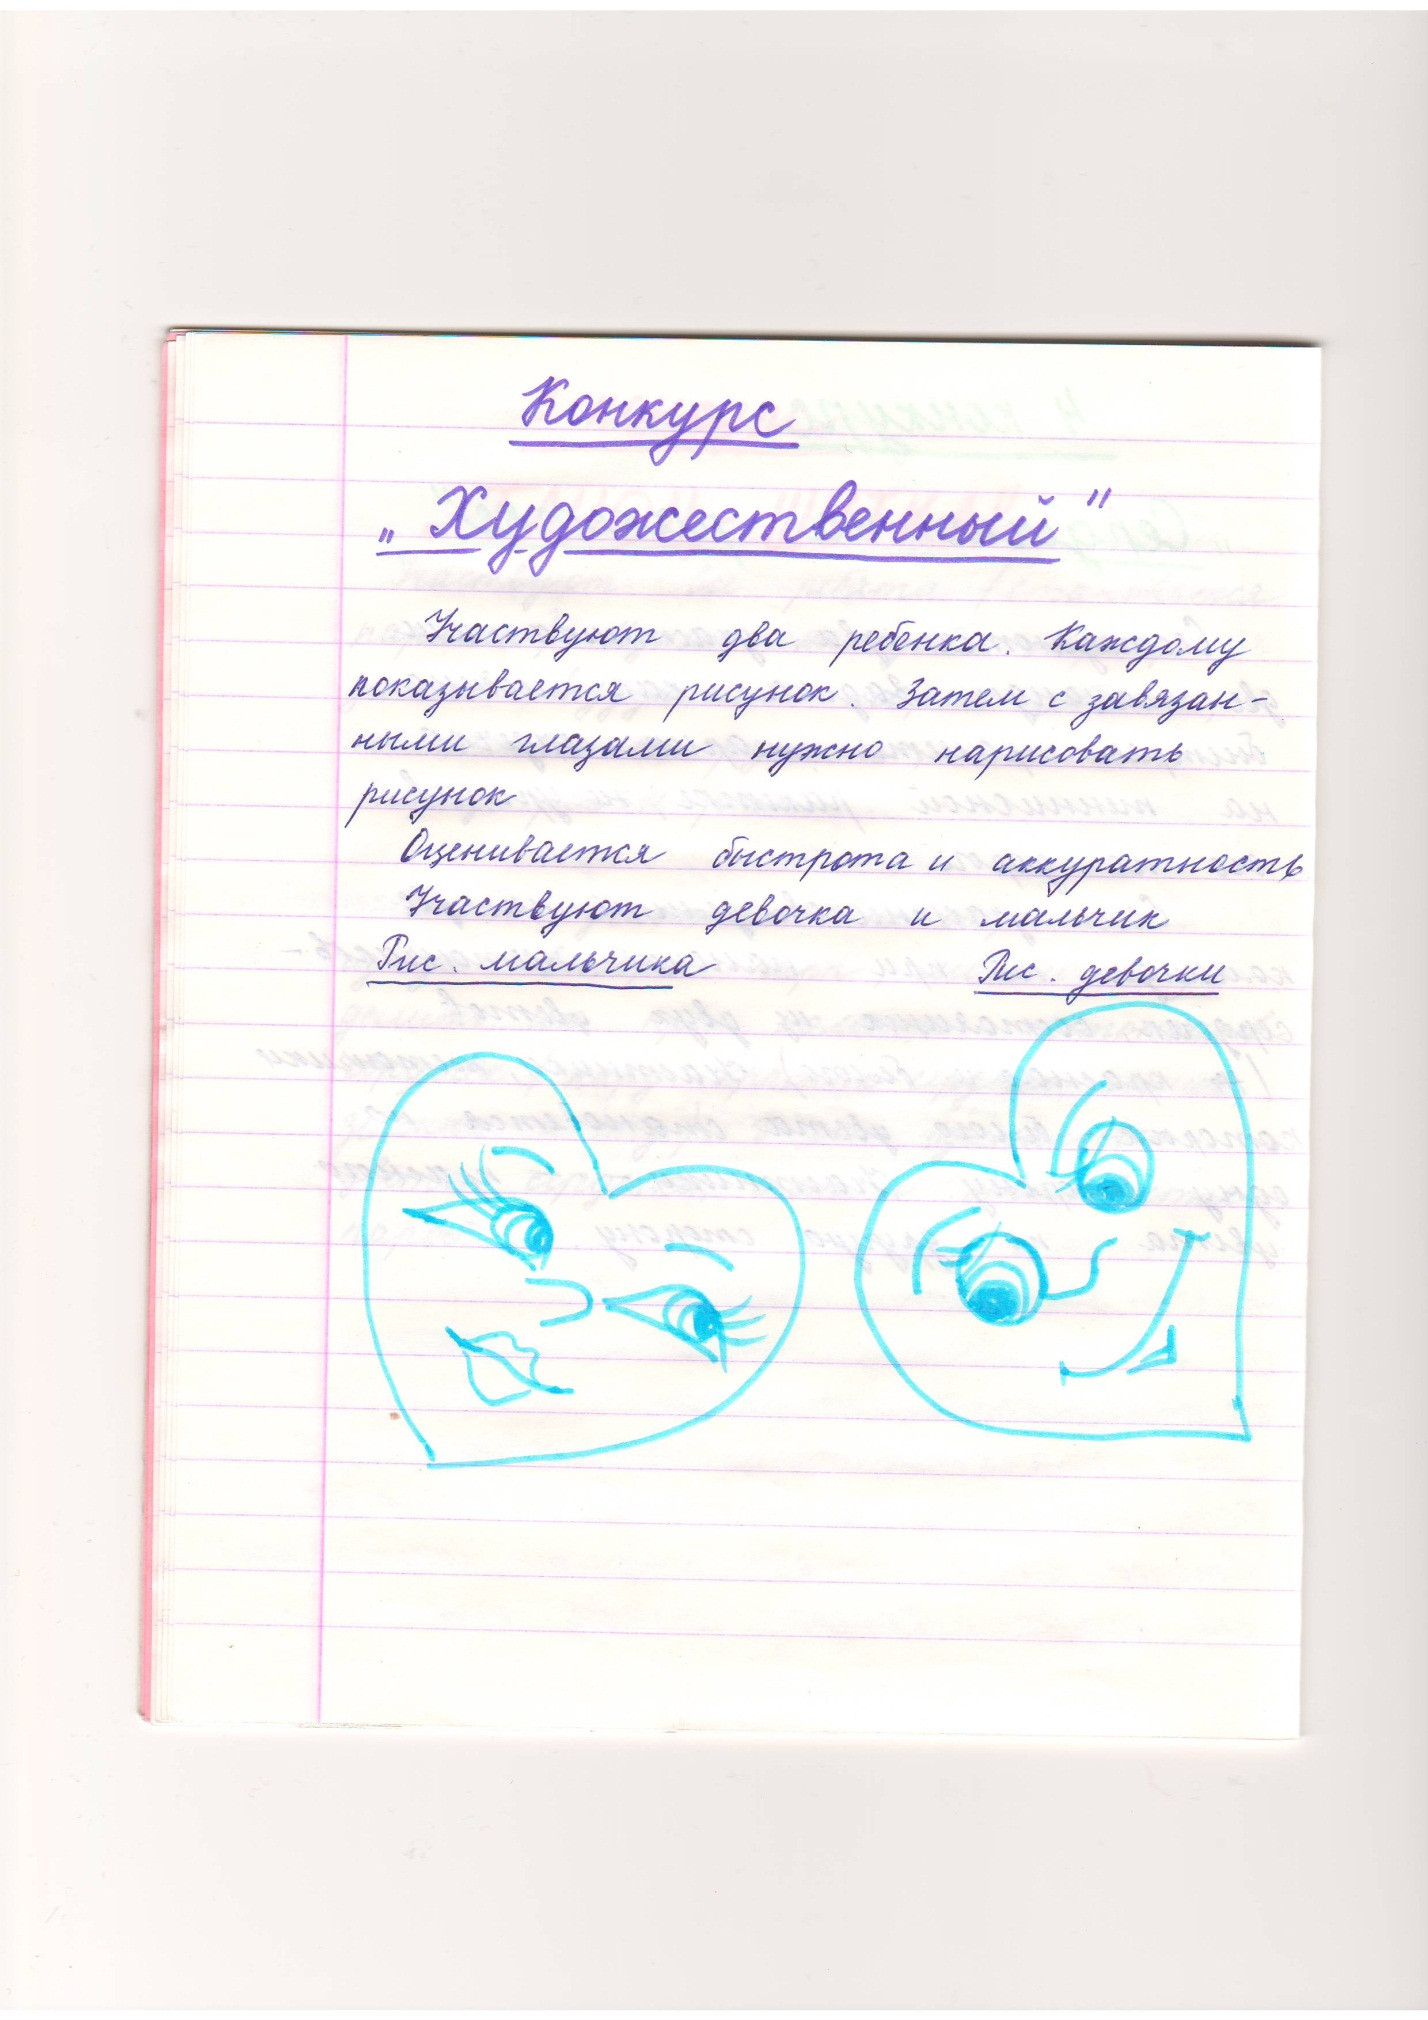 Конкурс
„Художественный"
Участвуют два ребенка. Каждому
показывается рисунок. Затем с завязан-
ными глазами нужно нарисовать
рисунок
Оценивается быстрота и аккуратность
Участвуют девочка и мальчик
Рис. мальчика Рис. девочки